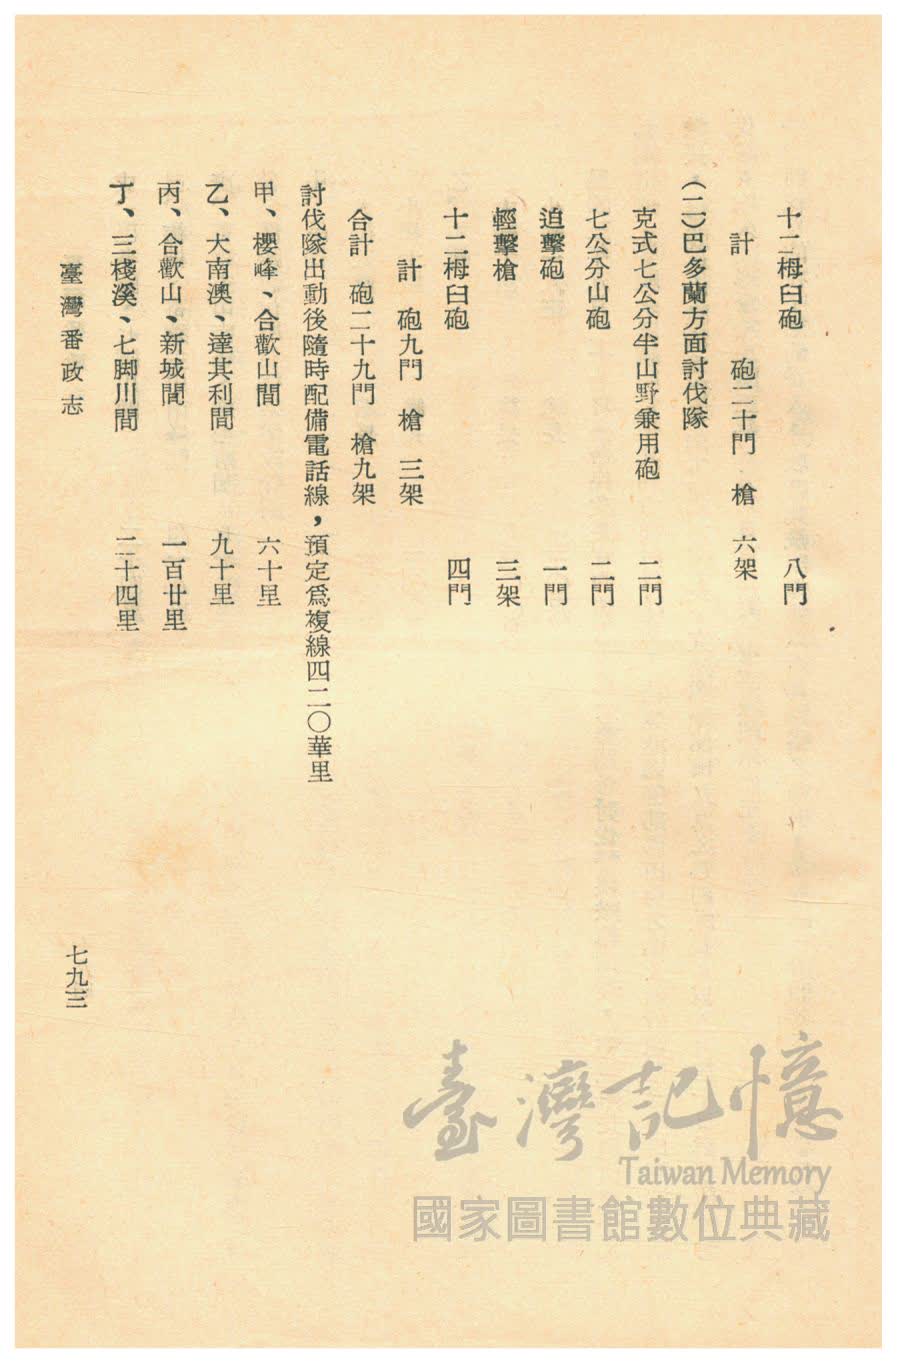 十二栂臼砲　八門
計　砲二十門　槍　六架
(二)巴多蘭方面討伐隊
克式七公分半山野兼用砲　二門
七公分山砲　二門
迫擊砲　一門
輕擊槍　三架
十二栂臼砲　四門
計　砲九門　槍　三架
合計　砲二十九門　槍九架
討伐隊出動後隨時配備電話線，預定爲複線四二〇華里
甲、櫻峰、合歡山間　六十里
乙、大南澳、達其利間　九十里
丙、合歡山、新城間　一百廿里
丁、三棧溪、七脚川間　二十四里
臺灣番政志
七九三
臺灣記憶
Taiwan Memory
國家圖書館數位典藏